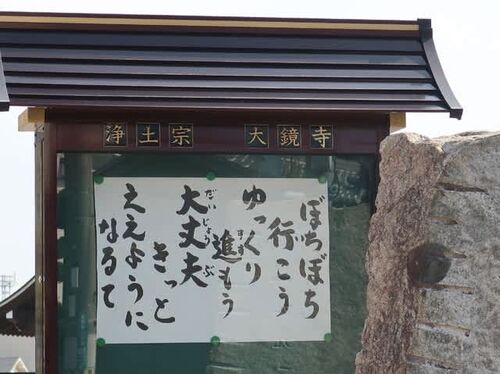 浄土宗 大鏡寺
ぼちぼち
行こう
ゆっくり
進もう
大丈夫
きっと
ええように
なるて